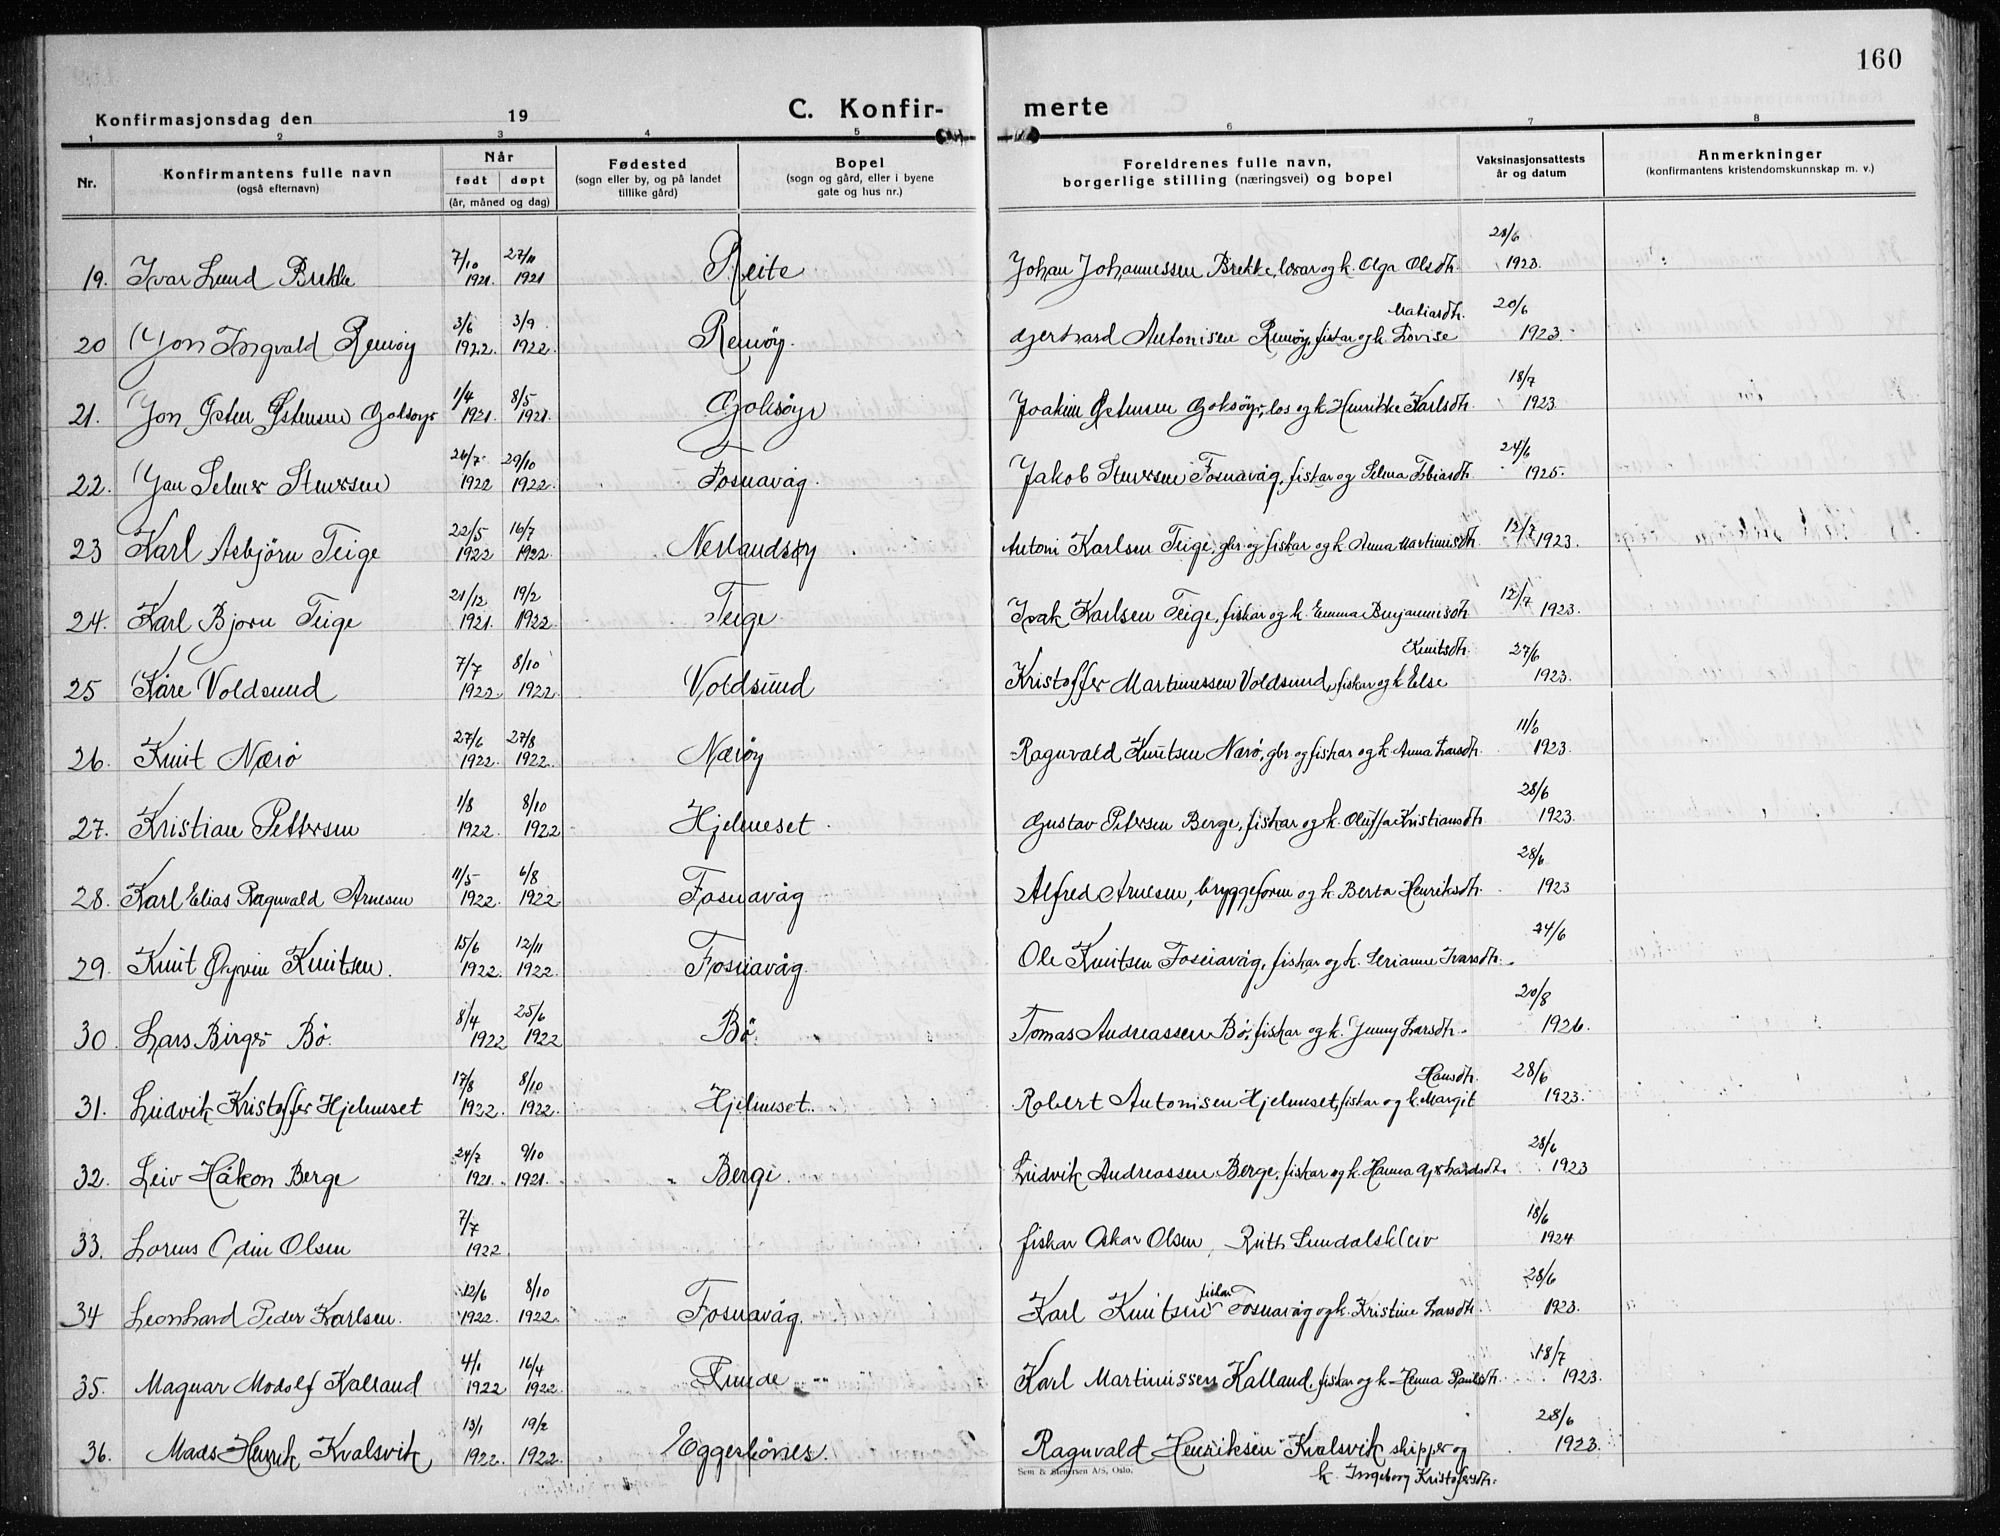 160
Konfirmasjonsdag den 19
C. Konfir-merte
1 2 3 4 5 6 7 8
Nr. Konfirmantens fulle navn (også efternavn) Når født døpt (år, måned og dag) Fødested (sogn eller by, og på landet tillike gård) Bopel (sogn og gård, eller i byene gate og hus nr.) Foreldrenes fulle navn, borgerlige stilling (næringsvei) og bopel Vaksinasjonsattests år og datum Anmerkninger (konfirmantens kristendomskunnskap m. v.)
19. Ivar Lund Brekke 7/10 1921. 27/11 1921 Reite Johan Johannessen Brekke, lærar og k. Olga Olsdtr. 28/6 1923.
20 Jon Ingvald Remøy 3/6 1922. 3/9 1922. Remøy. Gerhard Antonisen Remøy, fiskar og k. Lovise Matiasdtr. 20/6 1923.
21. Jon Peter Østensen Goksøyr 1/4 1921. 8/5 1921. Goksøyr Joakim Østensen Goksøyr, los og k. Henrikke Karlsdtr. 18/7 1923.
22. Jan Selmer Sturesen 26/7 1922 29/10 1922. Fosnavåg. Jakob Sturesen Fosnavåg, fiskar og Selma Tobiasdtr. 24/6 1925.
23 Karl Asbjörn Teige 22/5 1922 16/7 1922. Nerlandsøy Antoni Karlsen Teige, gbr og fiskar og k. Anna Martinusdtr. 12/7 1923.
24. Karl Bjorn Teige 21/12 1921. 19/2 1922. Teige Isak Karlsen Teige, fiskar og k. Emma Benjaminsdtr. 12/7 1923.
25 Kåre Voldsund 7/7 1922. 8/10 1922. Voldsund Kristoffer Martinussen Voldsund, fiskar og k. Else Knutsdtr. 27/6 1923.
26. Knut Nærö 27/6 1922. 27/8 1922. Nærøy Ragnvald Knutsen Nærö, gbr og fiskar og k. Anna Larsdtr. 11/6 1923.
27. Kristian Pettersen 1/8 1922. 8/10 1922 Hjelmeset. Gustav Petersen Berge, fiskar og k. Oluffa Kristiansdtr. 28/6 1923.
28. Karl Elias Ragnvald Arnesen 11/5 1922. 6/8 1922 Fosnavåg Alfred Arnesen, bryggeform og k. Berta Henriksdtr. 28/6 1923
29. Knut Øyvin Knutsen. 15/6 1922. 12/11 1922. Fosnavåg. Ole Knutsen Fosnavåg, fiskar og k. Serianne Ivarsdtr. 24/6
30. Lars Birger Bö. 8/4 1922 25/6 1922 Bö. Tomas Andreassen Bö, fiskar og k. Jenny Larsdtr. 20/8 1926.
31. Ludvik Kristoffer Hjelmeset 17/8 1922. 8/10 1922. Hjelmeset. Robert Antonisen Hjelmeset, fiskar og k. Margit Hansdtr. 28/6 1923.
32. Leiv Håkon Berge 24/7 1921. 9/10 1921. Berge. Ludvik Andreassen Berge, fiskar og k. Hanna Gerhardsdtr. 28/6 1923
33. Lorens Odin Olsen 7/7 1922 fiskar Oskar Olsen, Ruth Sundalskleiv 18/6 1924
34 Leonhard Peder Karlsen. 12/6 1922. 8/10 1922. Fosnavåg. Karl Knutsen fiskar Fosnavåg og k. Kristine Larsdtr. 28/6 1923.
35. Magnar Modolf Kalland 4/1 1922 16/4 1922. Runde Karl Martinussen Kalland, fiskar og k. Henna Paulsdtr. 18/7 1923.
36. Mads Henrik Kvalsvik 13/1 1922. 19/2 1922. Eggesbönes. Ragnvald Henriksen Kvalsvik skipper og k. Ingeborg Kristofersdtr. 28/6 1923.
Sem & Stenersen A/S, Oslo.